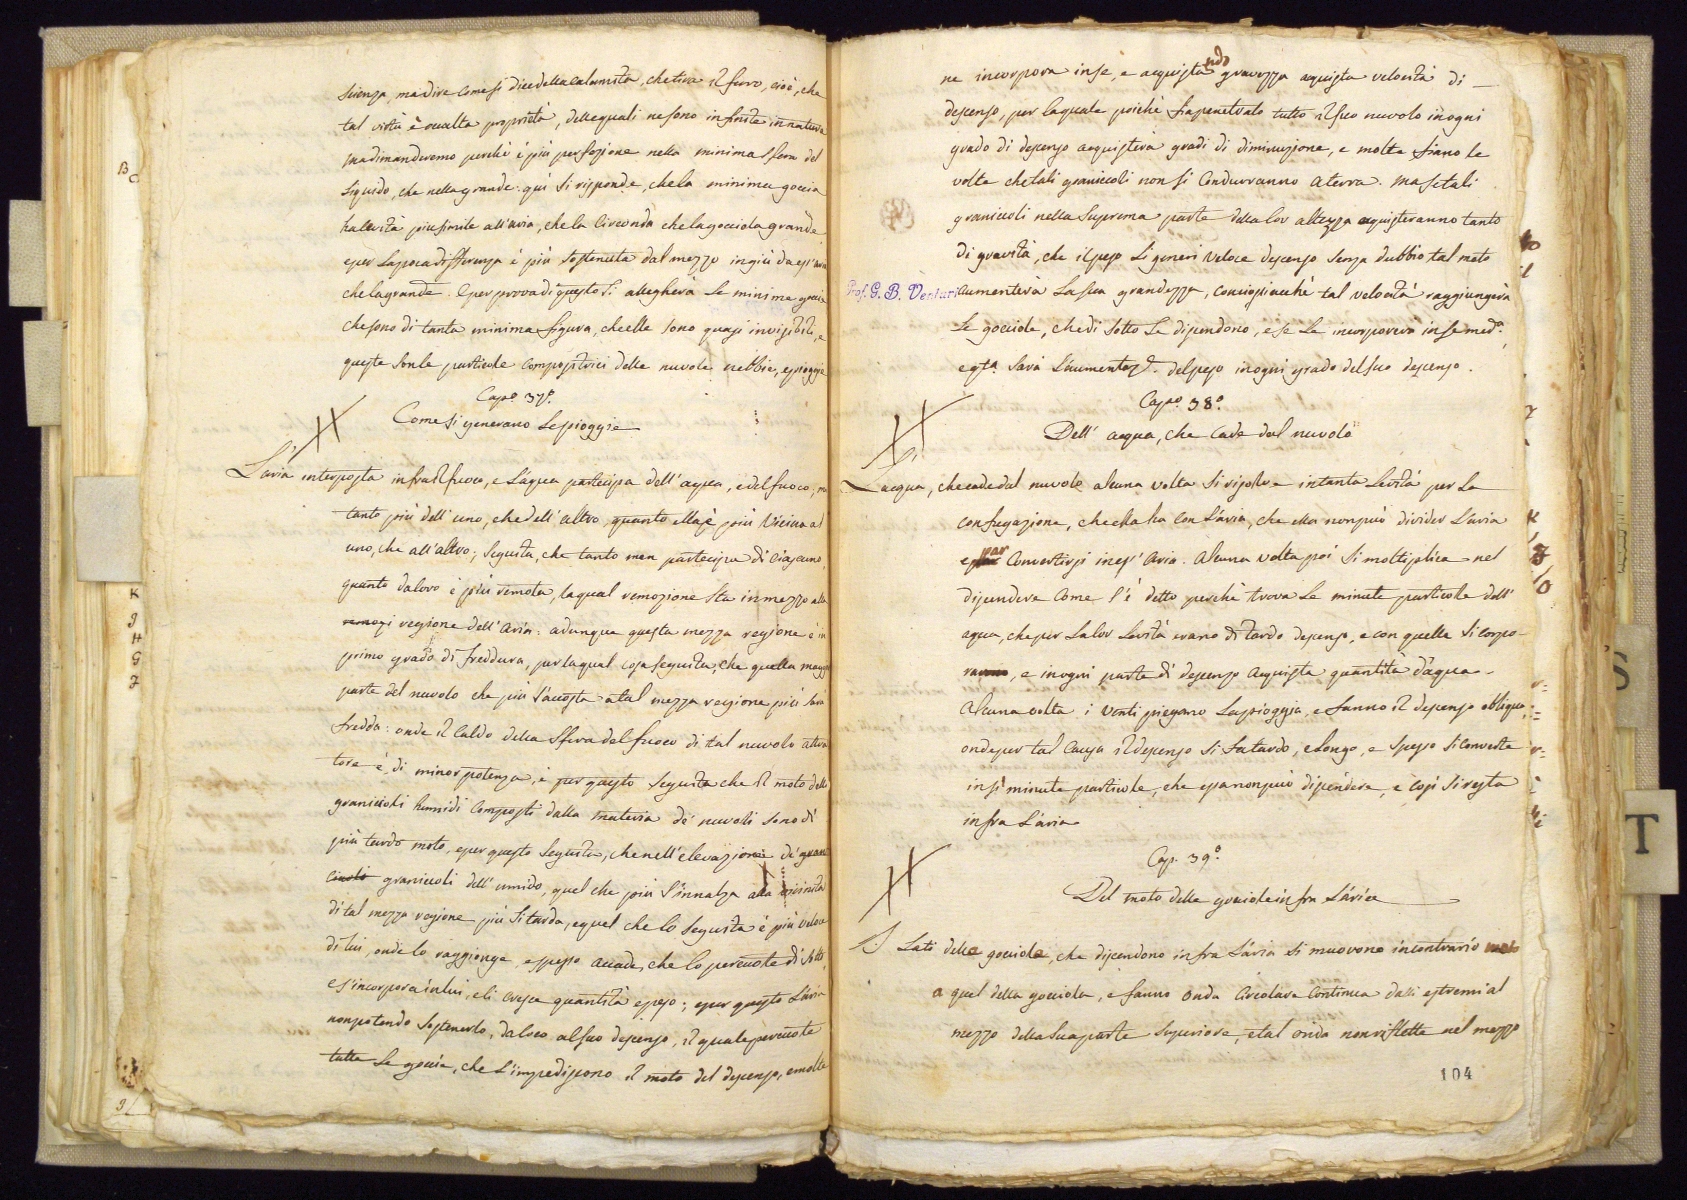 scienza, ma dire come si dice della calamita, che tira il ferro, cioè, che
tal virtù è occulta proprietà, delle quali ne sono infinite in natura
ma dimanderemo perchè è più perfezione nella minima sfera del
liquido, che nella grande: quì si risponde, che la minima goccia
ha levità più simile all'aria, che la circonda che la gocciola grande
e per la poca differenza è più sostenuta dal mezzo in giù da ess'aria
che la grande. E per prova di questo si allegherà le minime goccie
che sono di tanta minima figura, che elle sono quasi invisibili, e
queste son le particole compositrici delle nuvole nebbie, e pioggie
Capo. 37°.
Come si generano le pioggie
L'aria interposta infra il fuoco, e l'acqua partecipa dell'acqua, e del fuoco, ma
tanto più dell'uno, che dell'altro, quanto ella è più vicina al
uno, che all'altro; seguita, che tanto men partecipa di ciascuno,
quanto da loro è più remota, la qual remozione sta in mezzo alla
regione dell'aria: adunque questa mezza regione è in
primo grado di freddura, per la qual cosa seguita, che quella maggior
parte del nuvolo che più s'accosta a tal mezza regione più sarà
fredda: onde il caldo della sfera del fuoco di tal nuvolo attra
tore è di minor potenza, e per questo seguita che il moto delli
graniccioli humidi composti dalla materia de' nuvoli sono di
più tardo moto, e per questo seguita, che nell'elevazione de'
graniccoli dell'umido, quel che più s'innalza alla vicinità
di tal mezza regione più si tarda, e quel che lo seguita è più veloce
di lui, onde lo raggionge, e spesso accade, che lo percuote di sotto,
e s'incorpora in lui, e li cresce quantità e peso; e per questo l'aria
non potendo sostenerlo, dà loco al suo descenso, il quale percuote
tutte le goccie, che l'impediscono il moto del descenso, e molte
B
K
9
H
G
7
ne incorpora in se, e acquistando gravezza acquista velocità di
descenso, per la quale poichè fia penetrato tutto il suo nuvolo in ogni
grado di descenso acquisterà gradi di diminuzione, e molte fiano le
volte che tali graniccoli non si condurranno a terra. ma se tali
graniccoli nella suprema parte della lor altezza acquisteranno tanto
di gravità, che il peso li generi veloce descenso senza dubbio tal moto
Prof. G. B. Venturi
aumenterà la sua grandezza, conciosiacchè tal velocità raggiungerà
le gocciole, che di sotto le discendono, e se le incorporerà in se med.°
e q.ta sarà l'aumentaz.e del peso in ogni grado del suo descenso.
Capo. 38.°
Dell'acqua, che cade dal nuvolo
L'acqua, che cade dal nuvolo alcuna volta si risolve in tanta levità per la
confregazione, che ella ha con l'aria, che ella non può divider l'aria
e par convertirsi in ess'aria. Alcuna volta poi si moltiplica nel
discendere come s'è detto perchè trova le minute particole dell'
acqua, che per la lor levità erano di tardo descenso, e con quelle si corpo-
, e in ogni parte di descenso acquista quantità d'acqua.
Alcuna volta i venti piegano la pioggia, e fanno il descenso obliquo,
onde per tal causa il descenso si fa tardo, e longo, e spesso si converte
in sì minute particole, che essa non può discendere, e così si resta
infra l'aria
Cap. 39.°
Del moto delle gociole infra l'aria
I lati delle gocciole, che discendono infra l'aria si muovono in contrario moto
a quel della gocciola, e fanno onda circolare continua dalli estremi al
mezzo della sua parte superiore, e tal onda non riflette nel mezzo
104
S
T